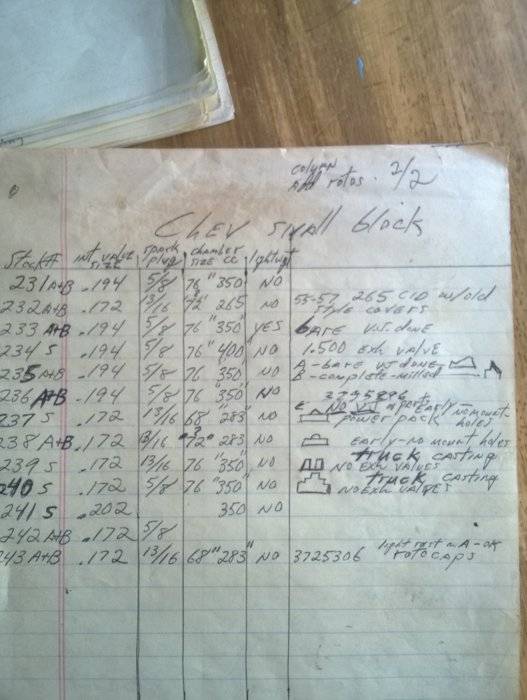 column
Add rotos. 2/2
Chev small block
Stock# int valve size spark plug chamber size cc lightwgt
231 A+B .194 5/8 76 "350" NO
232 A+B .172 13/16 72 265 NO 55-57 265 CID w/old style covers
233 A+B .194 5/8 76 "350" YES bare VJ. done
234 S .194 5/8 76 "400" NO 1.500 Exh valve
235 A+B .194 5/8 76 350 NO A-bare VJ done B-complete-milled
236 A+B .194 5/8 76 "350" NO
237 S .172 13/16 68 "283" NO power pack
238 A+B .172 13/16 72 "283" NO early-no mount holes
239 S .172 13/16 76 "350" NO truck casting NO Exh valves
240 S .172 5/8 76 "350" NO truck casting NO Exh valves
241 S .202 350 NO
242 A+B .172 5/8
243 A+B .172 13/16 68 "283" NO 3725306 light rust in A-OK rotocaps